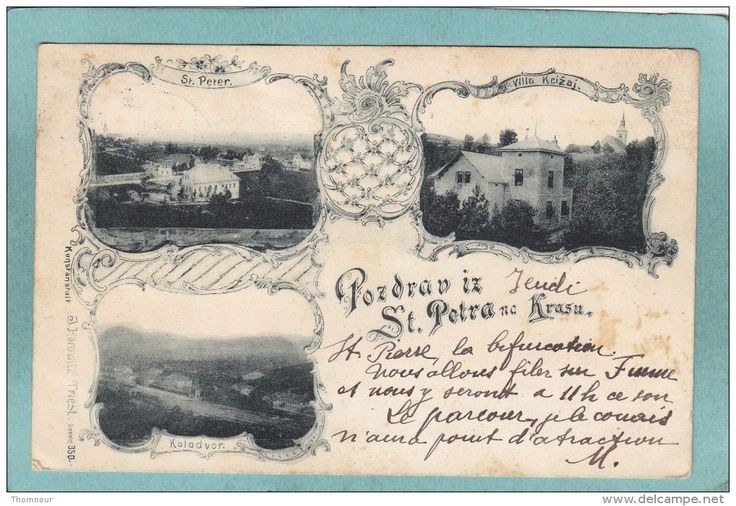 St. Peter.
Villa Križaj.
Pozdrav iz
St. Petra na Krasu.
Jeudi
St. Pierre, la bifurcation.
Nous allons filer sur Fiume
et nous y serons à 11h ce soir
Le parcour, je le connais
n'aura point d'atraction
M.
Kolodvor.
Kunstanstalt
Horowitz Triest. 350.
Thomnour
www.delcampe.net